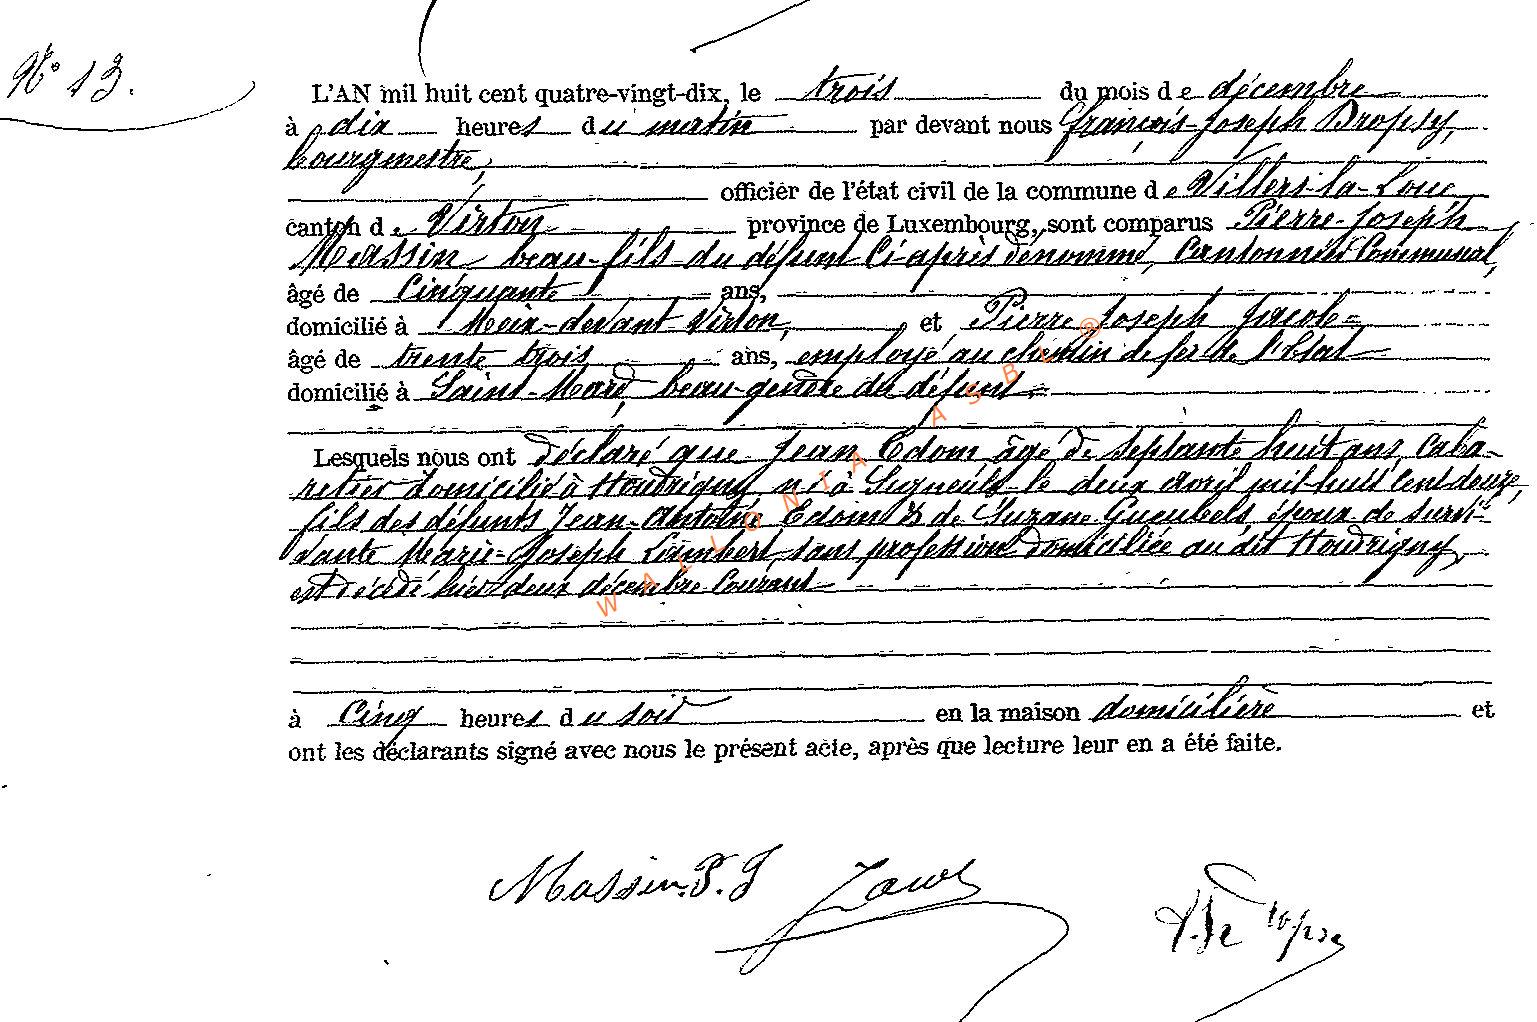 N° 13.
L'AN mil huit cent quatre-vingt-dix, le trois du mois de décembre
à dix heures du matin par devant nous François-Joseph Dropsy,
bourgmestre,
officier de l'état civil de la commune de Villers-la-Loue
canton de Virton province de Luxembourg, sont comparus Pierre-Joseph
Massin beau-fils du défunt Ci-après dénommé, Cantonnier Communal,
âgé de Cinquante ans,
domicilié à Meix-devant-Virton, et Pierre Joseph Jacob
âgé de trente trois ans, employé au chemin de fer de l'Etat
domicilié à Saint-Mard, beau-gendre du défunt
Lesquels nous ont déclaré que Jean Edom âgé de septante huit ans, Caba-
retier domicilié à Houdrigny, né à Sugneulx le deux avril mil huit Cent douze,
fils des défunts Jean-Antoine Edom & de Suzane Gueubels époux de survi-
vante Marie-Joseph Lambert, sans profession domiciliée au dit Houdrigny,
est décédé hier deux décembre Courant
à Cinq heures du soir en la maison domicilière et
ont les déclarants signé avec nous le présent acte, après que lecture leur en a été faite.
Massin. P. J Jacob
WALLONIA ASBL ®